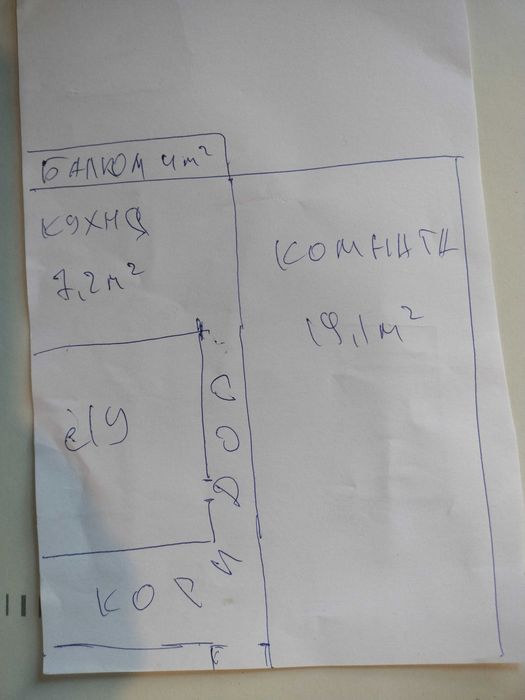 БАЛКОМ 4м²
КУХНЯ
7,2м²
КОМНАТА
19,1м²
с/у
КОРИДОС